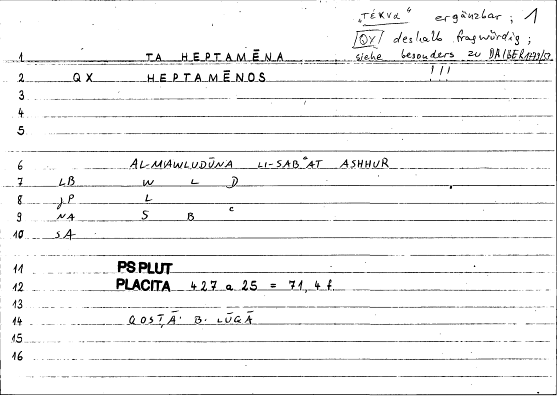 „TÉKVA" ergänzbar; 1
QX deshalb fragwürdig;
siehe besonders zu DAIBER 179/51
!!!
1 TA HEPTAMĒNA
2 QX HEPTAMĒNOS
3
4
5
6 AL-MAWLUDŪNA LI-SABʿAT ASHHUR
7 LB W L D
8 JP L
9 NA S B ʿ
10 SA
11 PS PLUT
12 PLACITA 427 a 25 = 71,4 f.
13
14 QOSṬĀ B. LŪQĀ
15
16